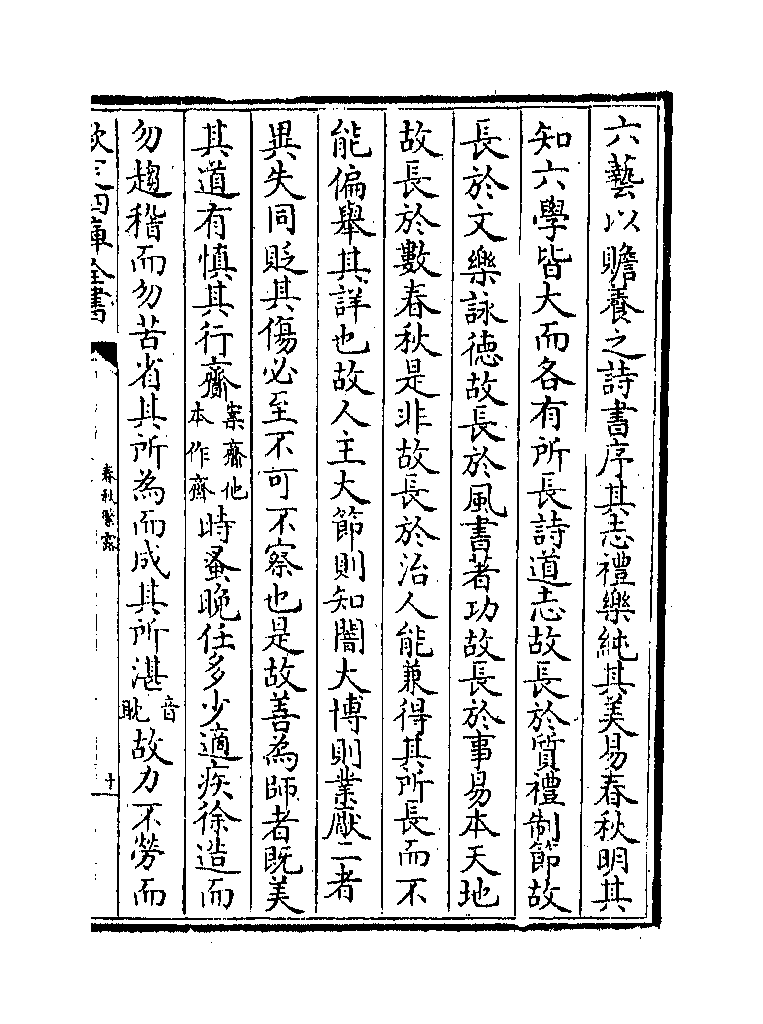 六藝以贍養之詩書序其志禮樂純其美易春秋明其
知六學皆大而各有所長詩道志故長於質禮制節故
長於文樂詠徳故長於風書著功故長於事易本天地
故長於數春秋是非故長於治人能兼得其所長而不
能偏舉其詳也故人主大節則知闇大博則業厭二者
異失同貶其傷必至不可不察也是故善為師者既美
其道有慎其行齋案齋他本作齊時蚤晚任多少適疾徐造而
勿趨稽而勿苦省其所為而成其所湛音耽故力不勞而
欽定四庫全書
春秋繁露
十